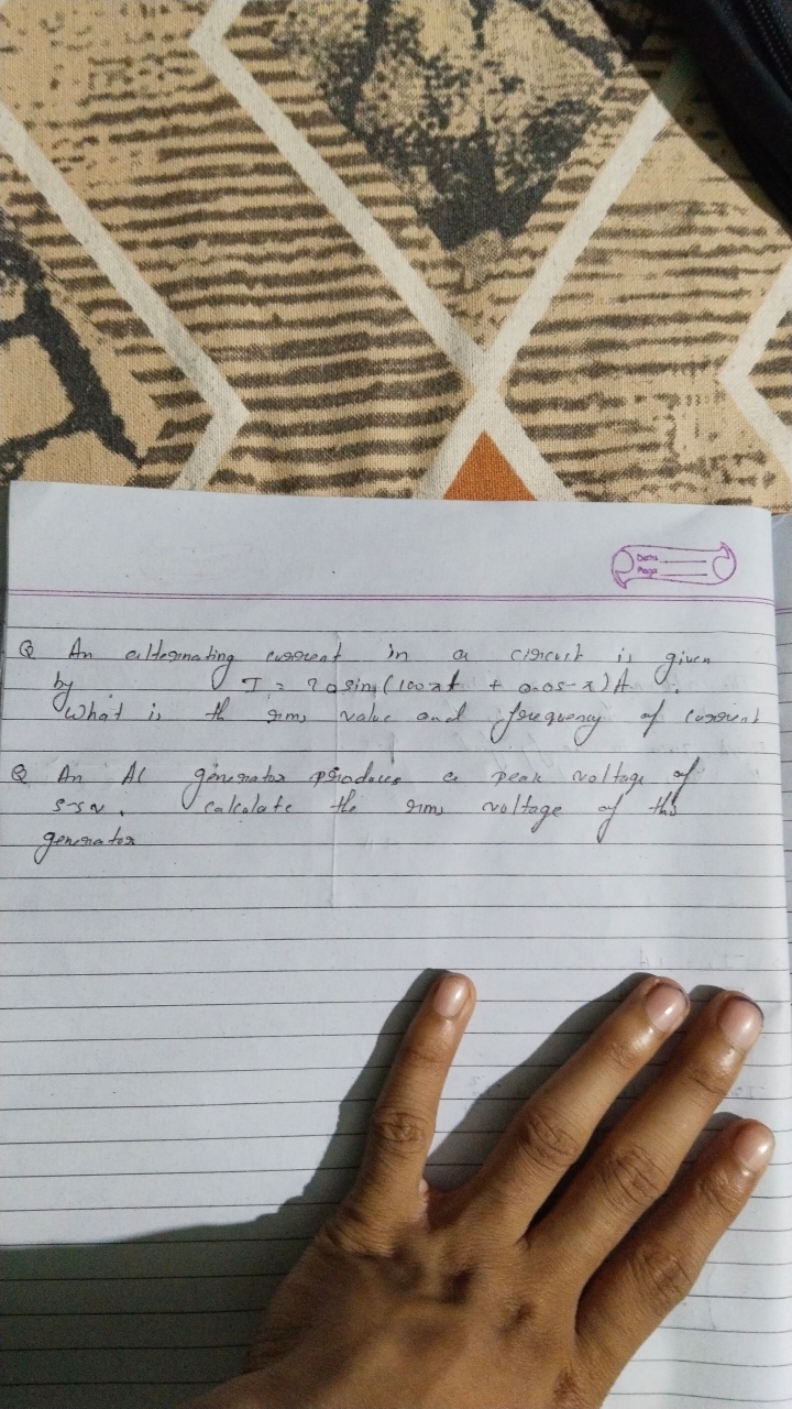 Date
Page
Q An alternating current in a circuit is given
by I = 20 sin (100πt + 0.05π) A.
What is th rms value and frequency of current
Q An AC generator produces a peak voltage of
calculate the rms voltage of this
generator